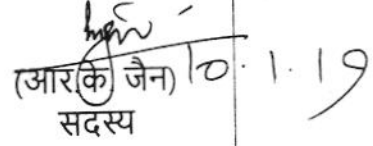 (आर.के जैन) 10.1.19
सदस्य